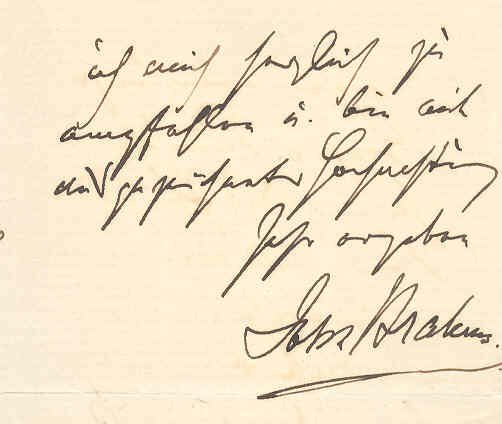 ich mich herzlich zu
empfehlen u. bin mit
ausgezeichneter Hochachtung
sehr ergeben
Brahms.